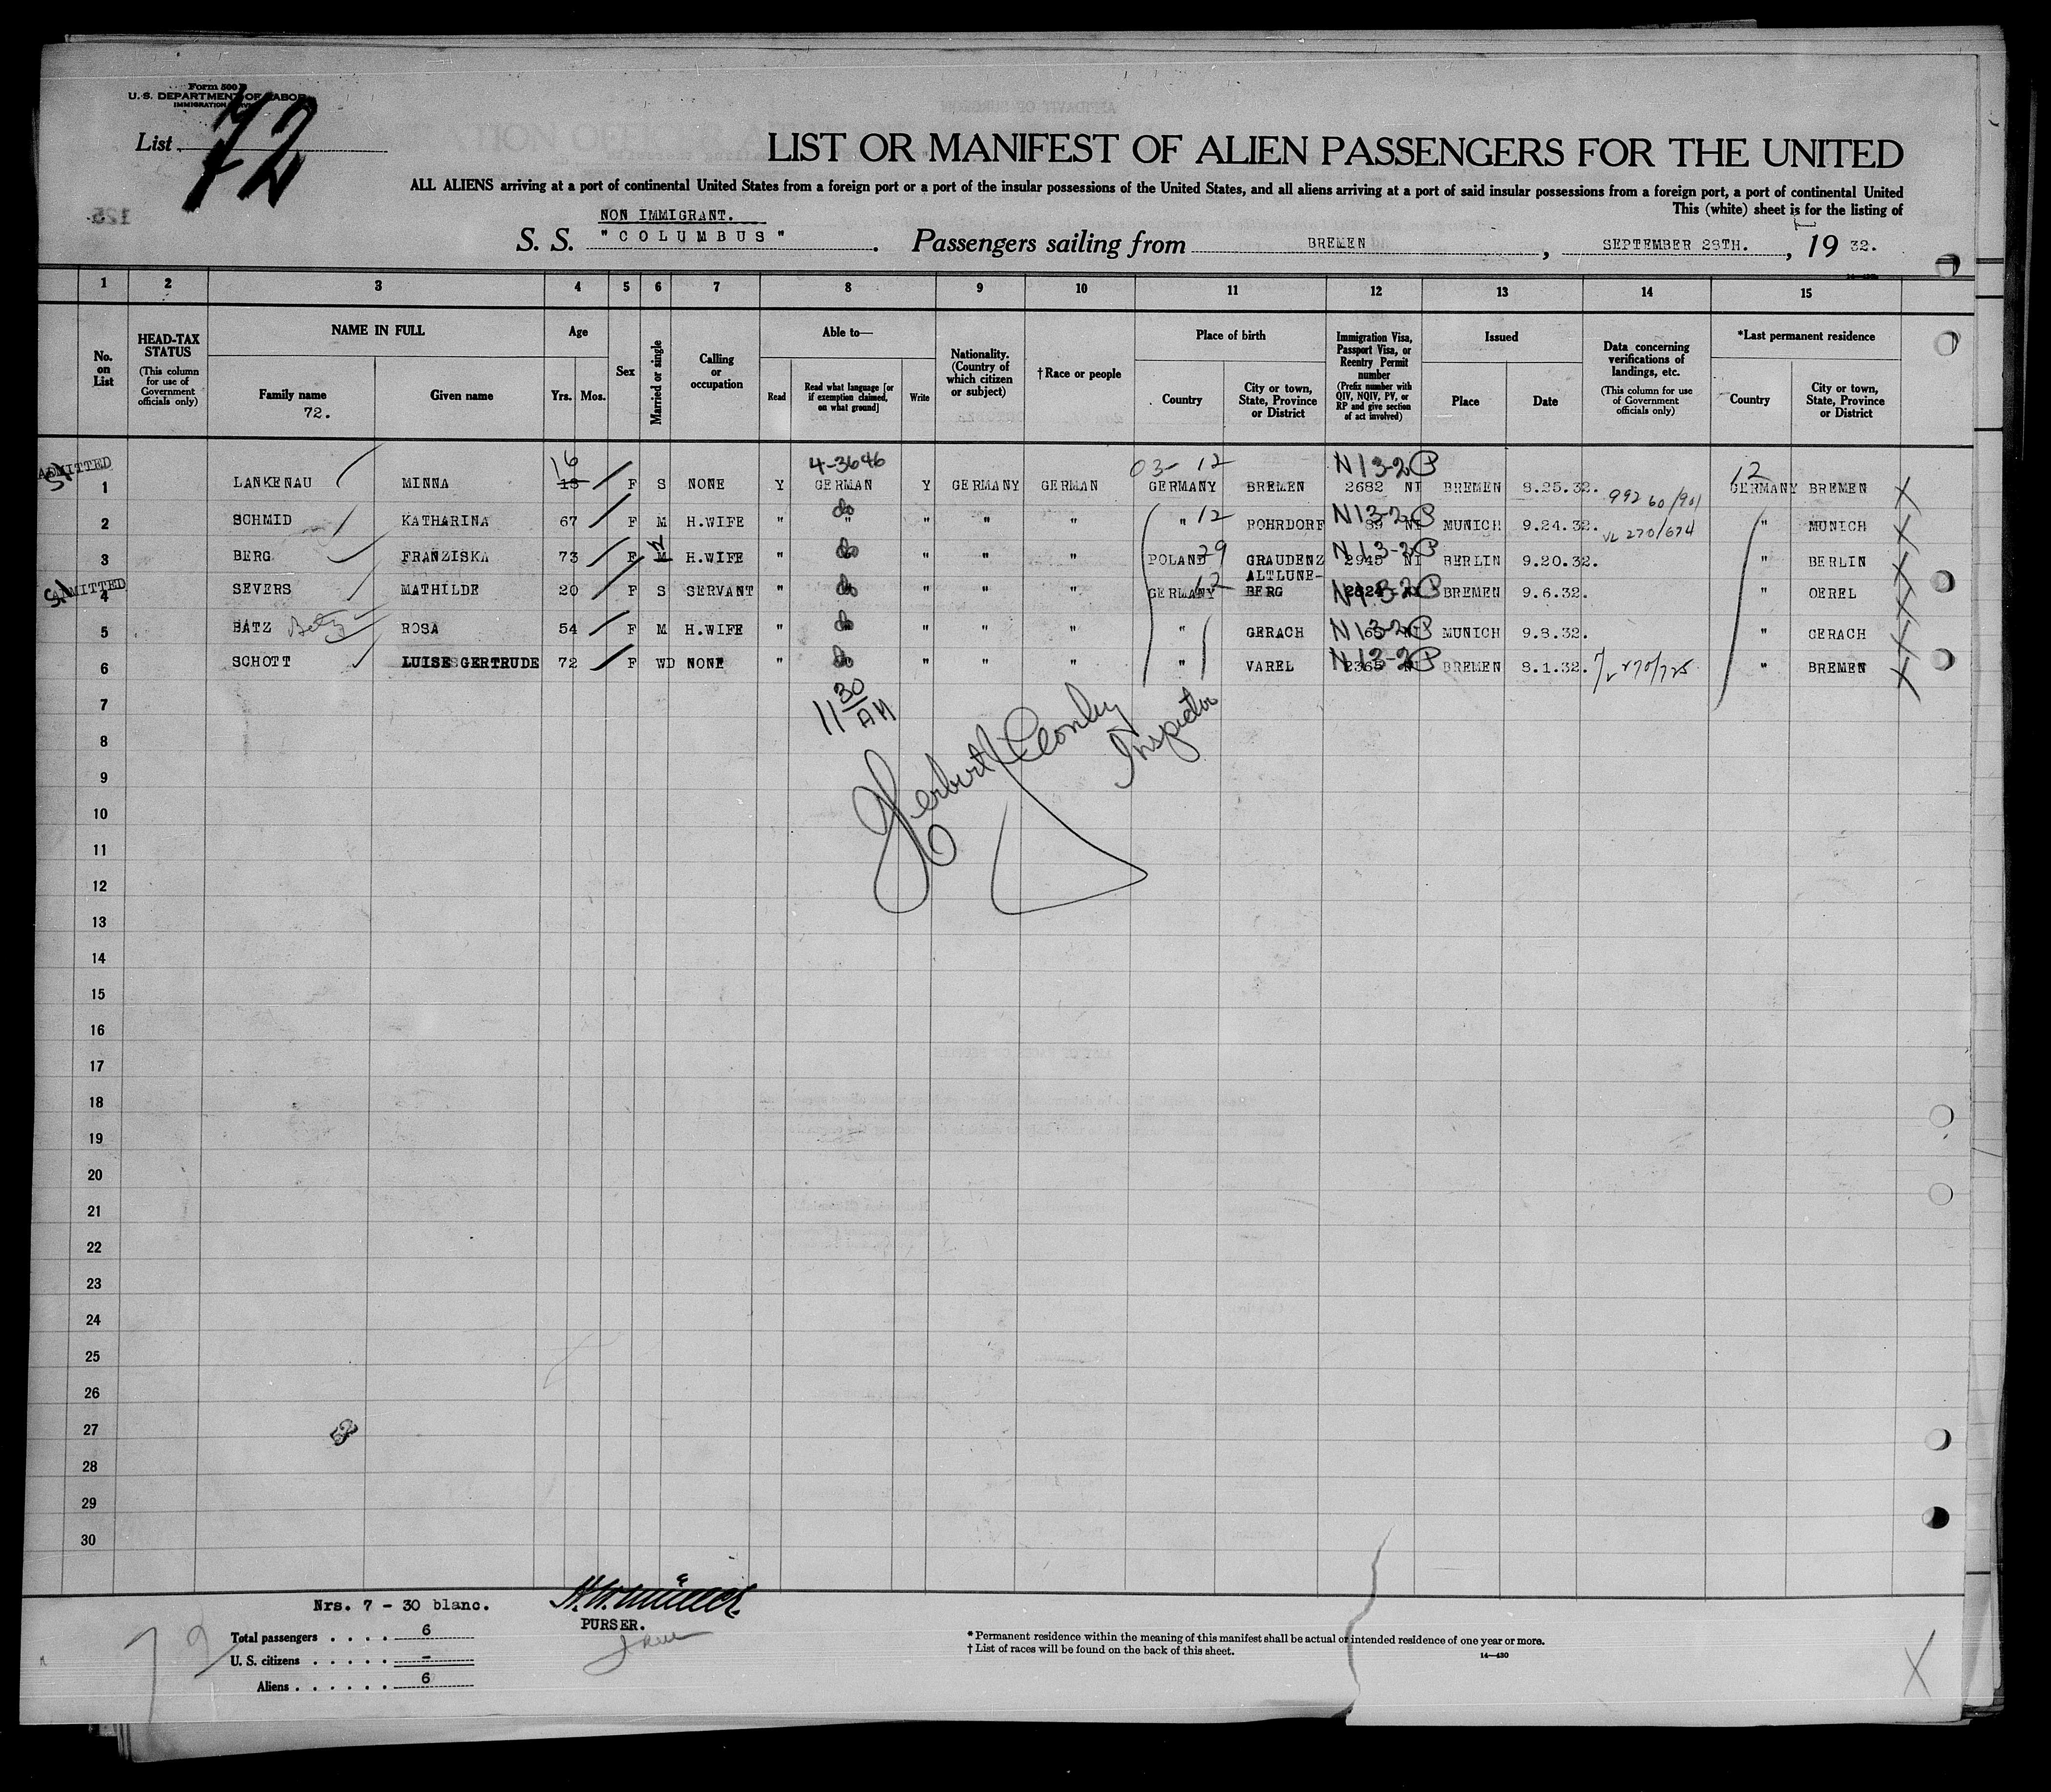 Form 500
U. S. DEPARTMENT OF LABOR
IMMIGRATION
List 72
LIST OR MANIFEST OF ALIEN PASSENGERS FOR THE UNITED
ALL ALIENS arriving at a port of continental United States from a foreign port or a port of the insular possessions of the United States, and all aliens arriving at a port of said insular possessions from a foreign port, a port of continental United
This (white) sheet is for the listing of
NON IMMIGRANT.
S. S. "COLUMBUS". Passengers sailing from BREMEN, SEPTEMBER 28TH., 19 32.
1 2 3 4 5 6 7 8 9 10 11 12 13 14 15
No. on List
HEAD-TAX STATUS (This column for use of Government officials only)
NAME IN FULL
Family name
72.
Given name
Age
Yrs. Mos.
Sex
Married or single
Calling or occupation
Able to—
Read
Read what language [or if exemption claimed, on what ground]
Write
Nationality. (Country of which citizen or subject)
† Race or people
Place of birth
Country
City or town, State, Province or District
Immigration Visa, Passport Visa, or Reentry Permit number (Prefix number with QIV, NQIV, PV, or RP and give section of act involved)
Issued
Place
Date
Data concerning verifications of landings, etc. (This column for use of Government officials only)
*Last permanent residence
Country
City or town, State, Province or District
ADMITTED 16 4-3646 03- 12 N13-2P 12
1 LANKENAU MINNA F S NONE Y GERMAN Y GERMANY GERMAN GERMANY BREMEN 2682 NI BREMEN 8.25.32. GERMANY BREMEN X
99260/901
2 SCHMID KATHARINA 67 F M H.WIFE " do " " " " 12 ROHRDORF N13-2P 89 NI MUNICH 9.24.32. VL 270/674 " MUNICH X
3 BERG FRANZISKA 73 F M H.WIFE " do " " " POLAND 29 GRAUDENZ N13-2P 2945 NI BERLIN 9.20.32. " BERLIN X
ADMITTED
4 SEVERS MATHILDE 20 F S SERVANT " do " " " GERMANY 12 ALTLUNE-BERG N13-2P BREMEN 9.6.32. " OEREL X
5 BATZ Betz ROSA 54 F M H.WIFE " do " " " " GERACH N13-2P MUNICH 9.8.32. " GERACH X
6 SCHOTT LUISE GERTRUDE 72 F WD NONE " do " " " " VAREL N13-2P 2365 NI BREMEN 8.1.32. " BREMEN X
11 30 AM
Inspector
7
8
9
10
11
12
13
14
15
16
17
18
19
20
21
22
23
24
25
26
27
28
29
30
Nrs. 7 - 30 blanc.
PURSER.
Total passengers . . . . 6
U. S. citizens . . . . . –
Aliens . . . . . . 6
* Permanent residence within the meaning of this manifest shall be actual or intended residence of one year or more.
† List of races will be found on the back of this sheet.
14—430
X